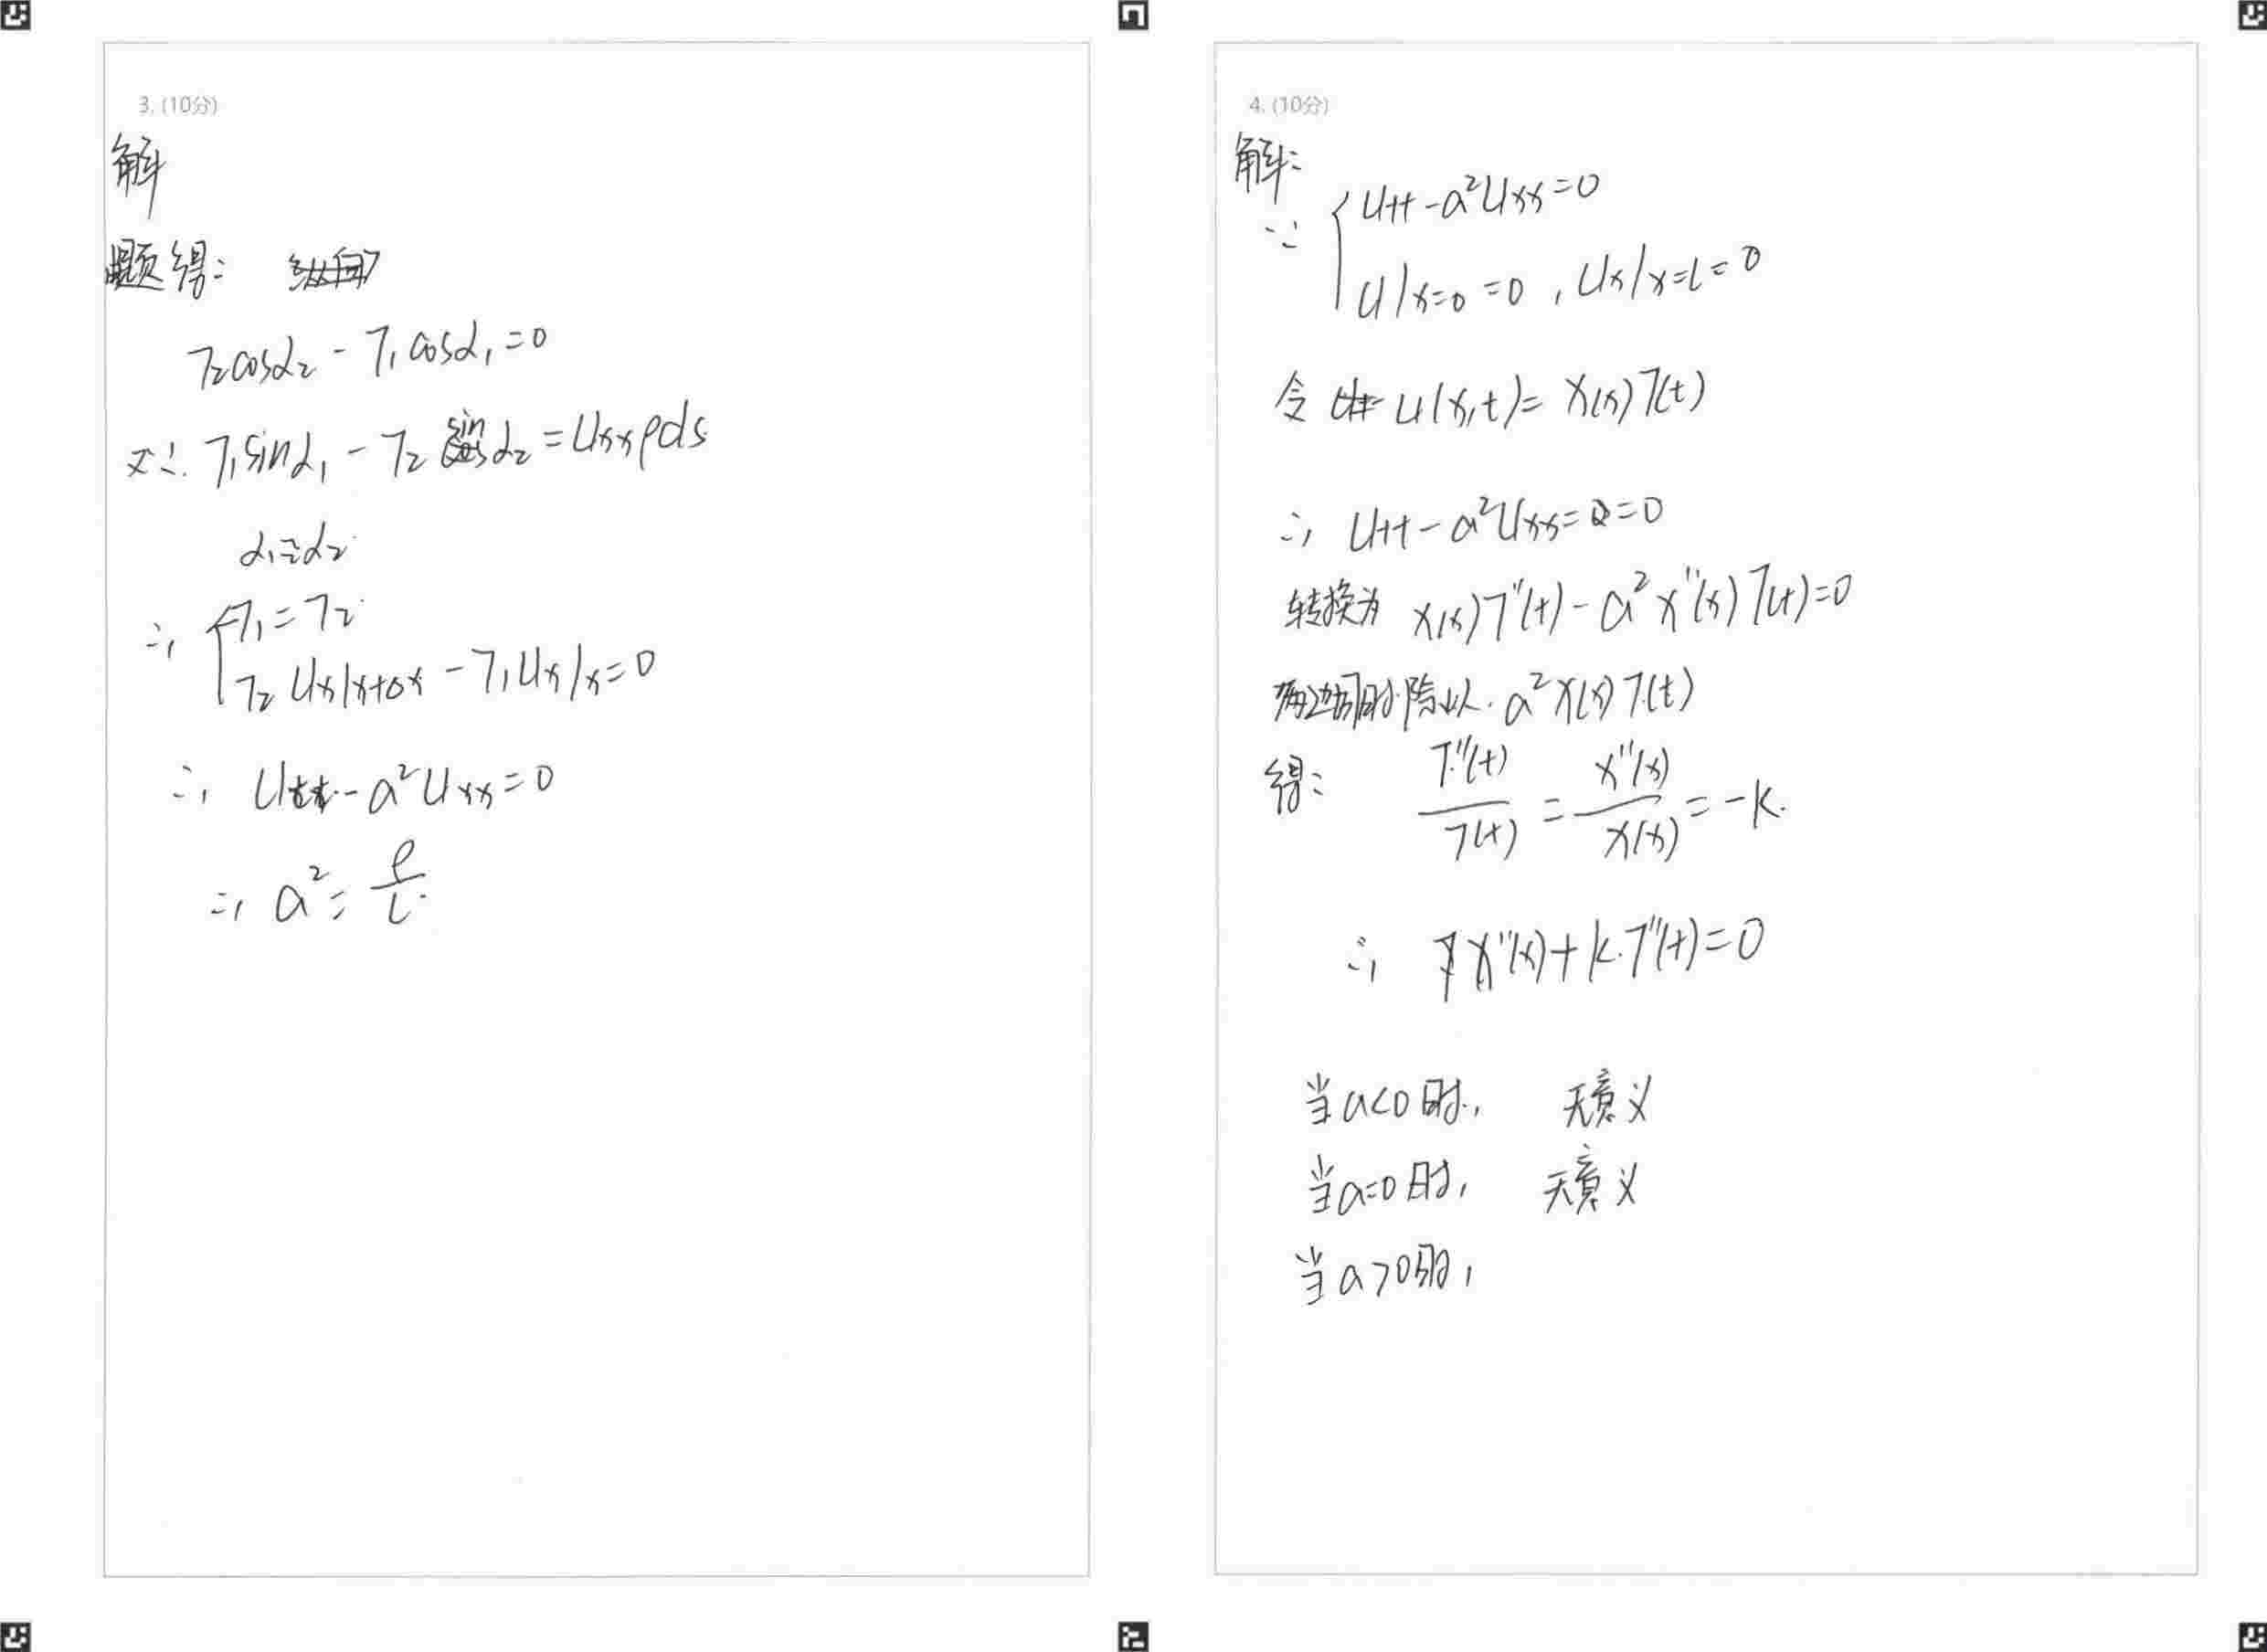 3. (10分)
解
题得:
T₂cosα₂ - T₁cosα₁ = 0
又∵ T₁sinα₁ - T₂sinα₂ = Uxxρds
α₁≈α₂
∴ { T₁ = T₂
T₂Ux|x+Δx - T₁Ux|x = 0
∴ Utt - a²Uxx = 0
∴ a² = ρ/L
4. (10分)
解:
∵ { Utt - a²Uxx = 0
U|x=0 = 0 , Ux|x=L = 0
令 U(x,t) = X(x)T(t)
∴ Utt - a²Uxx = 0 = 0
转换为 X(x)T''(t) - a²X''(x)T(t) = 0
两边同时除以 a²X(x)T(t)
得: T''(t)/T(t) = X''(x)/X(x) = -k.
∴ X''(x) + k.T''(t) = 0
当a<0时, 无意义
当a=0时, 无意义
当a>0时,